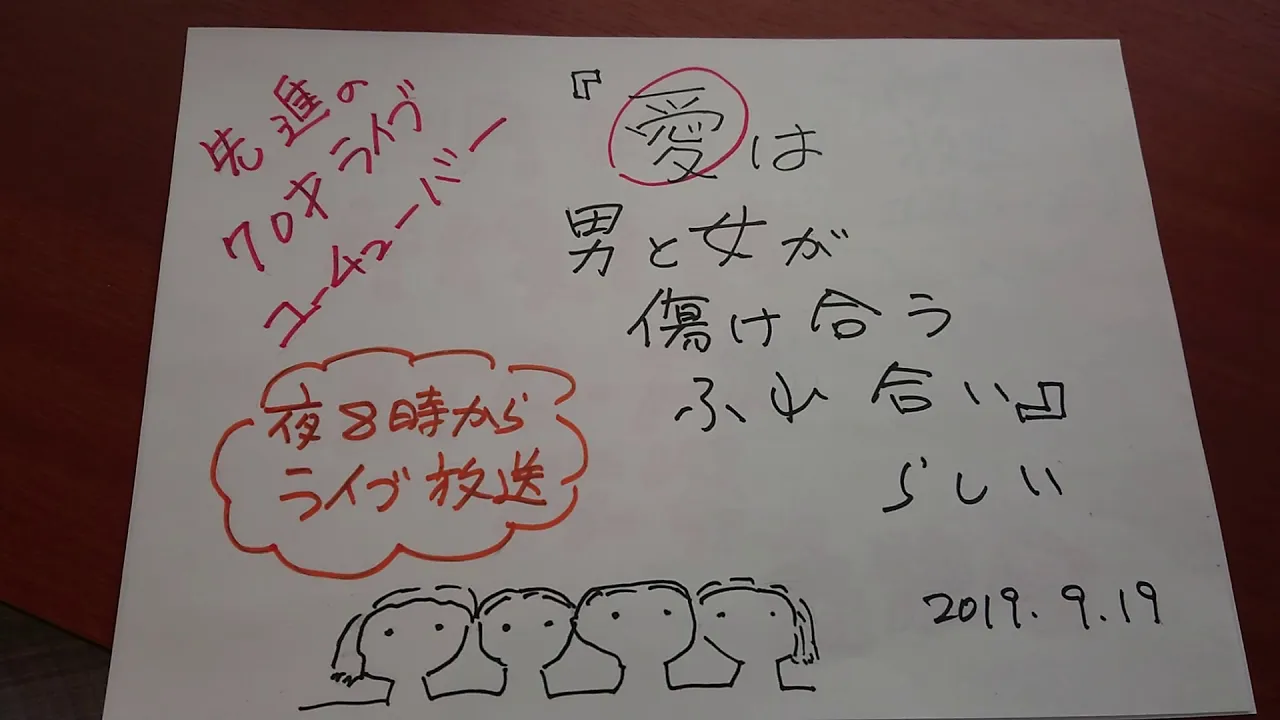 先進の
70才ライブ
ユーチューバー
『愛は
男と女が
傷け合う
ふれ合い』
らしい
夜8時から
ライブ放送
2019.9.19